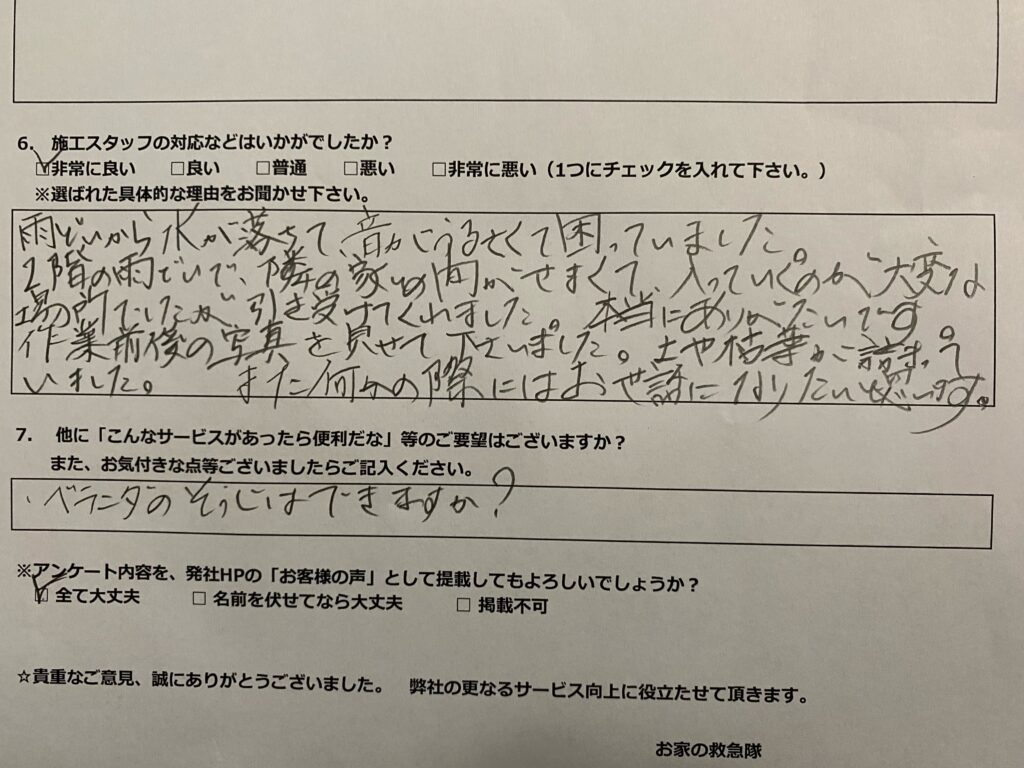 6. 施工スタッフの対応などはいかがでしたか？
☑非常に良い □良い □普通 □悪い □非常に悪い（1つにチェックを入れて下さい。）
※選ばれた具体的な理由をお聞かせ下さい。
雨どいから水が落ちて、音がうるさくて困っていました。
2階の雨どいで、隣の家との間がせまくて、入っていくのが大変な
場所でしたが引き受けてくれました。本当にありがたいです。
作業前後の写真を見せて下さいました。土や枯葉がご詰まって
いました。 また何かの際にはお世話になりたい思います。
7. 他に「こんなサービスがあったら便利だな」等のご要望はございますか？
また、お気付きな点等ございましたらご記入ください。
・ベランダのそうじはできますか？
※アンケート内容を、発社HPの「お客様の声」として提載してもよろしいでしょうか？
☑ 全て大丈夫 □ 名前を伏せてなら大丈夫 □ 掲載不可
☆貴重なご意見、誠にありがとうございました。 弊社の更なるサービス向上に役立たせて頂きます。
お家の救急隊